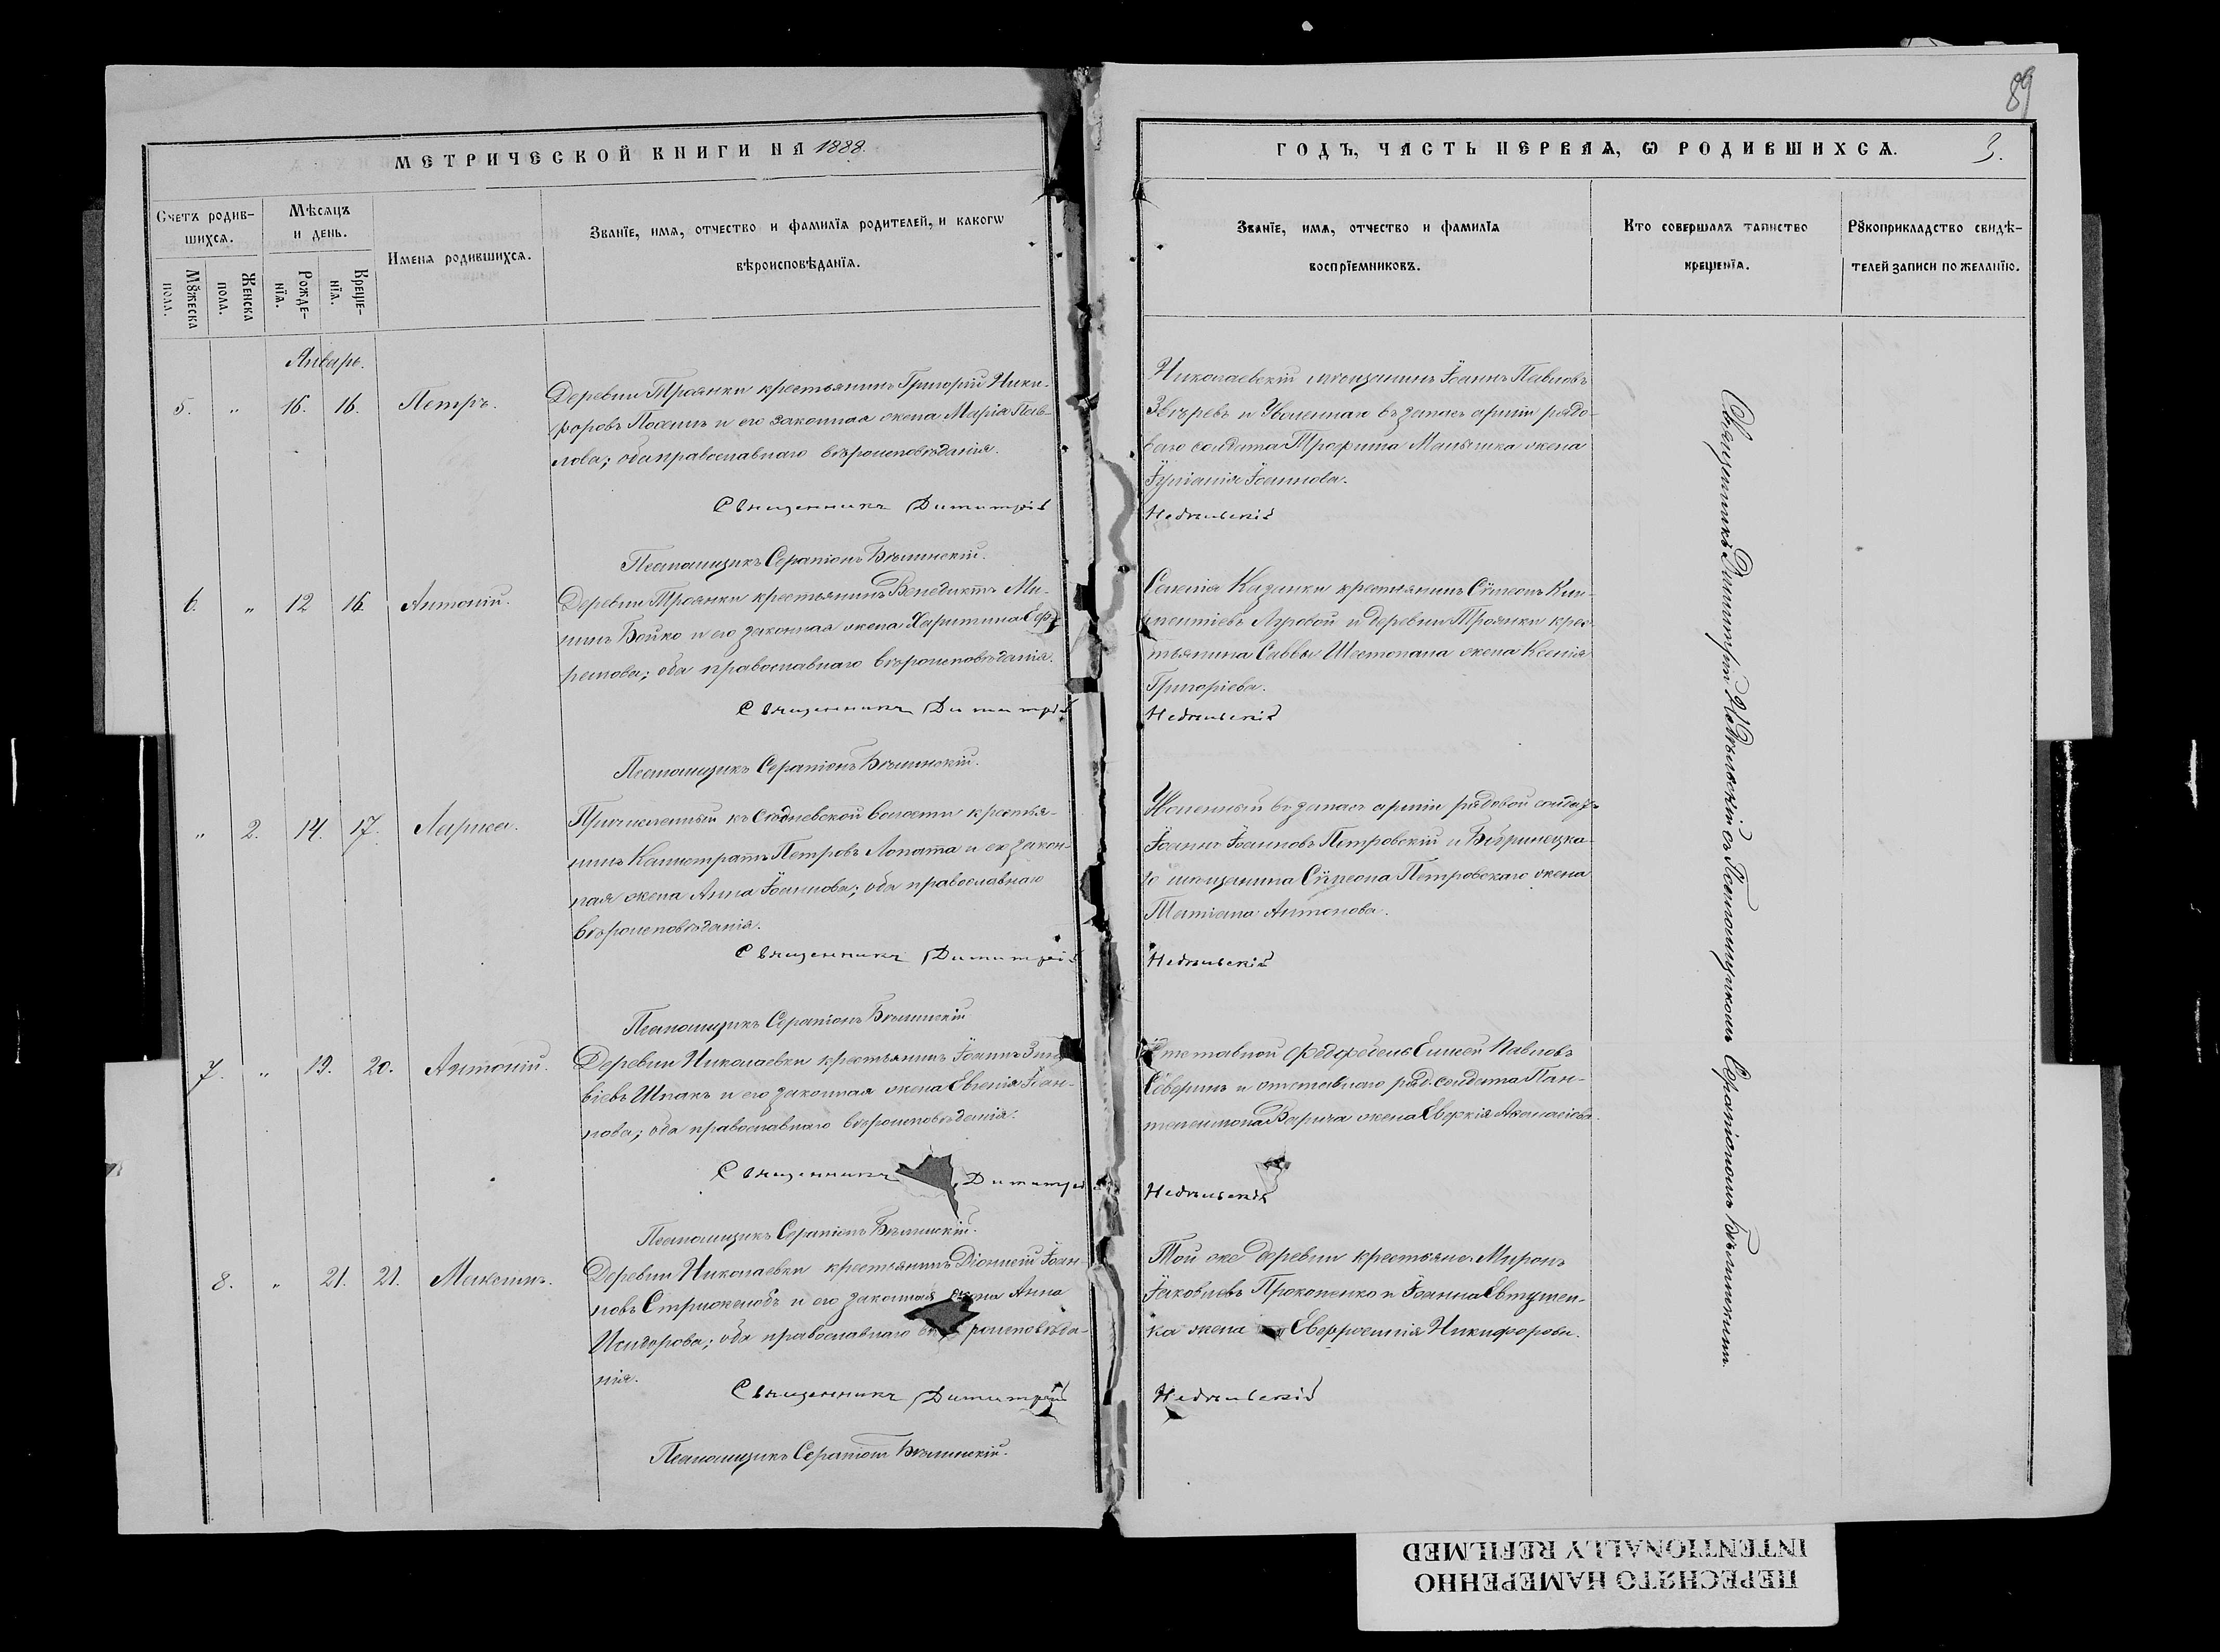 89
МЕТРИЧЕСКОЙ КНИГИ НА 1888.
ГОДЪ, ЧАСТЬ ПЕРВАЯ, Ѡ РОДИВШИХСЯ. 3.
Счетъ родив-
шихся.
Мѹжеска
пола.
Женска
пола.
Мѣсяцъ
и день.
Рожде-
нїя.
Креще-
нїя.
Имена родившихся.
Званїе, имя, отчество и фамилїя родителей, и какогѡ
вѣроисповѣданїя.
Званїе, имя, отчество и фамилїя
воспрїемниковъ.
Кто совершалъ таинство
крещенїя.
Рѹкоприкладство свидѣ-
телей записи по желанїю.
Январь.
5. " 16. 16. Петръ.
Деревни Троянки крестьянинъ Григорій Ники-
форовъ и его законная жена Марія Пав-
лова; оба православнаго вѣроисповѣданія.
Священникъ Димитрій
Псаломщикъ Серапіонъ Бѣлинскій.
Николаевскій мѣщанинъ Іоаннъ Павловъ
Звѣревъ и Уволеннаго въ запасъ арміи рядо-
ваго солдата Трофима жена
Іуліанія Іоаннова.
Недѣльскій
6. " 12 16. Антоній.
Деревни Троянки крестьянинъ Венедиктъ Ми-
нинъ Бойко и его законная жена Харитина Еф-
ремова; оба православнаго вѣроисповѣданія.
Священникъ Димитрій
Псаломщикъ Серапіонъ Бѣлинскій.
Селенія Казанки крестьянинъ Сѵмеонъ Кли-
ментіевъ Луговой и деревни Троянки крес-
тьянина Саввы Шестопала жена Ксенія
Григоріева.
Недѣльскій
" 2. 14. 17. Лариса.
Причисленный къ волости крестья-
нинъ Каллистратъ Петровъ Лопата и его закон-
ная жена Анна Іоаннова; оба православнаго
вѣроисповѣданія.
Священникъ Димитрій
Псаломщикъ Серапіонъ Бѣлинскій
Уволенный въ запасъ арміи рядовой солдатъ
Іоаннъ Іоанновъ Петровскій и Бобринецка-
го мѣщанина Сѵмеона Петровскаго жена
Татіана Антонова.
Недѣльскій
7. " 19. 20. Антоній.
Деревни Николаевки крестьянинъ Іоаннъ Зино-
віевъ Шпакъ и его законная жена Евгенія Іоан-
нова; оба православнаго вѣроисповѣданія.
Священникъ Димитрій
Псаломщикъ Серапіонъ Бѣлинскій.
Отставной фельдфебель Елисей Павловъ
Северинъ и отставнаго ряд. солдата Пан-
телеимона жена Аѳанасіева.
Недѣльскій
8. " 21. 21. Максимъ.
Деревни Николаевки крестьянинъ Діонисій Іоан-
новъ Стрижековъ и его законная жена Анна
Исидорова; оба православнаго вѣроисповѣда-
нія.
Священникъ Димитрій
Псаломщикъ Серапіонъ Бѣлинскій.
Той же деревни крестьяне Миронъ
Іаковлевъ Прокопенко и Іоанна Евтушен-
ка жена Евфросинія Никифорова.
Недѣльскій
Священникъ Димитрій Недѣльскій съ Псаломщикомъ Серапіономъ Бѣлинскимъ.
ПЕРЕСНЯТО НАМЕРЕННО
INTENTIONALLY REFILMED